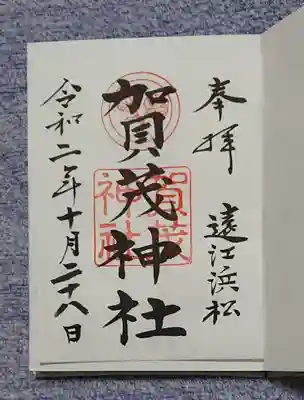 奉拝
遠江浜松
賀茂神社
賀茂
神社
令和二年十月二十八日